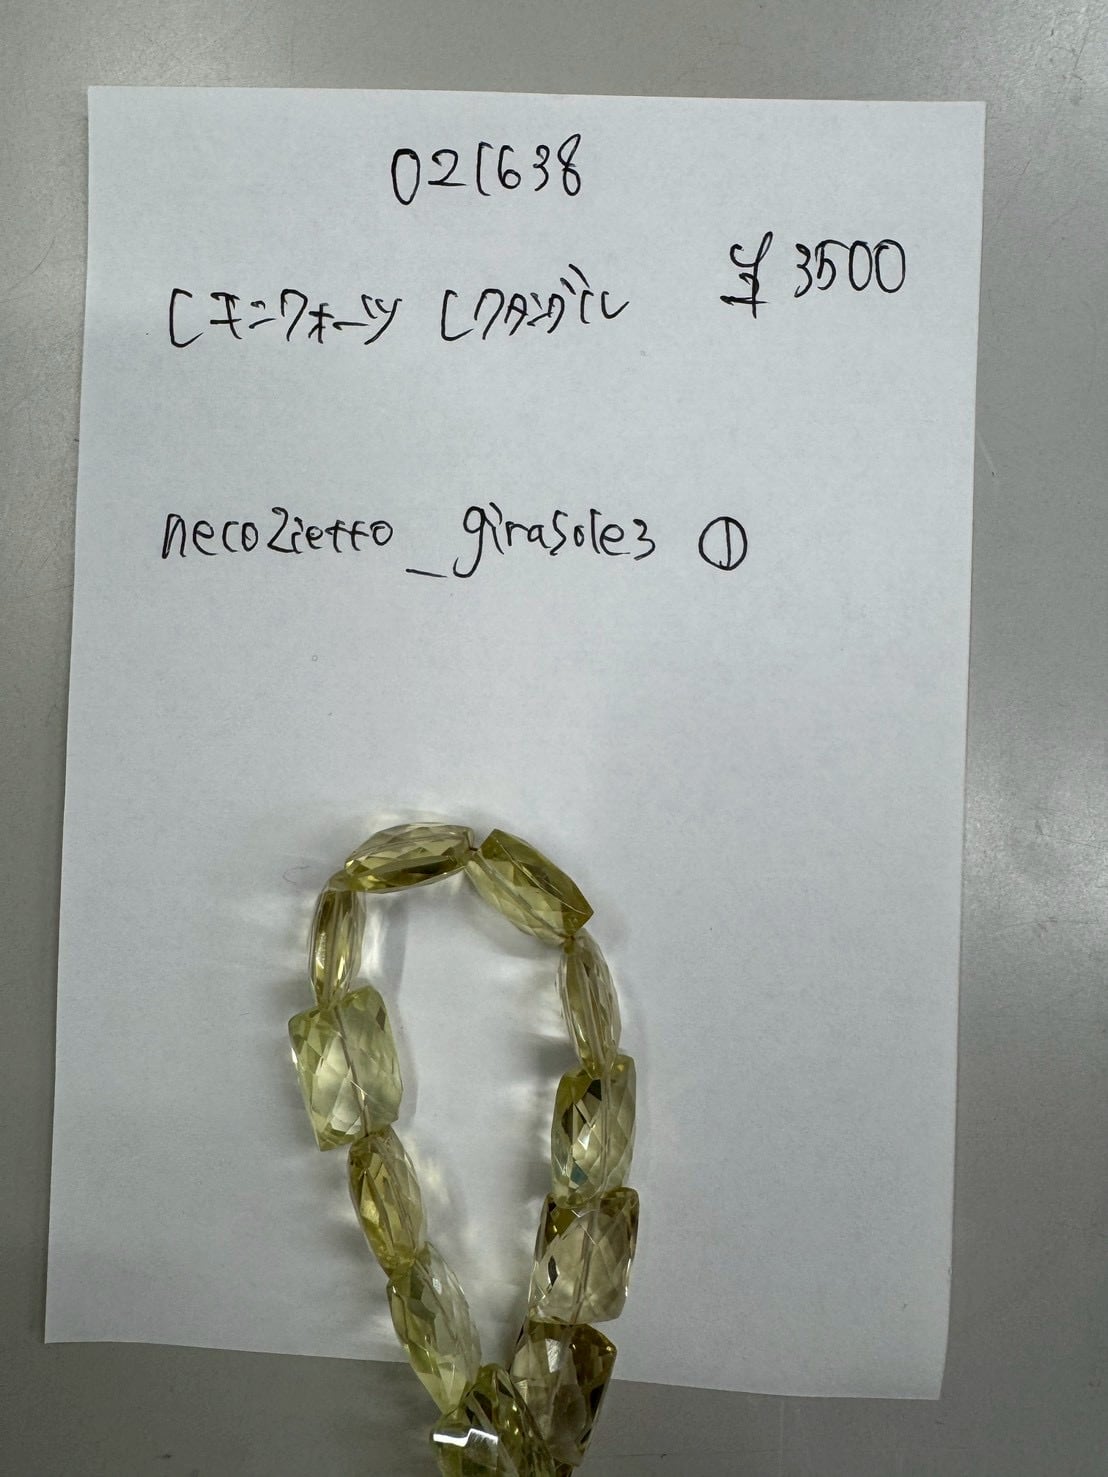 021638
¥3500
レモンクォーツ レクタングル
necozietto_girasole3 ①